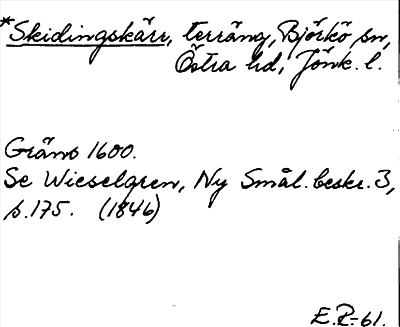 *Skidingskärr, terräng, Björkö sn,
Östra hd, Jönk. l.
Gräns 1600.
Se Wieselgren, Ny Smål. beskr. 3,
s. 175. (1846)
E.R.-61.